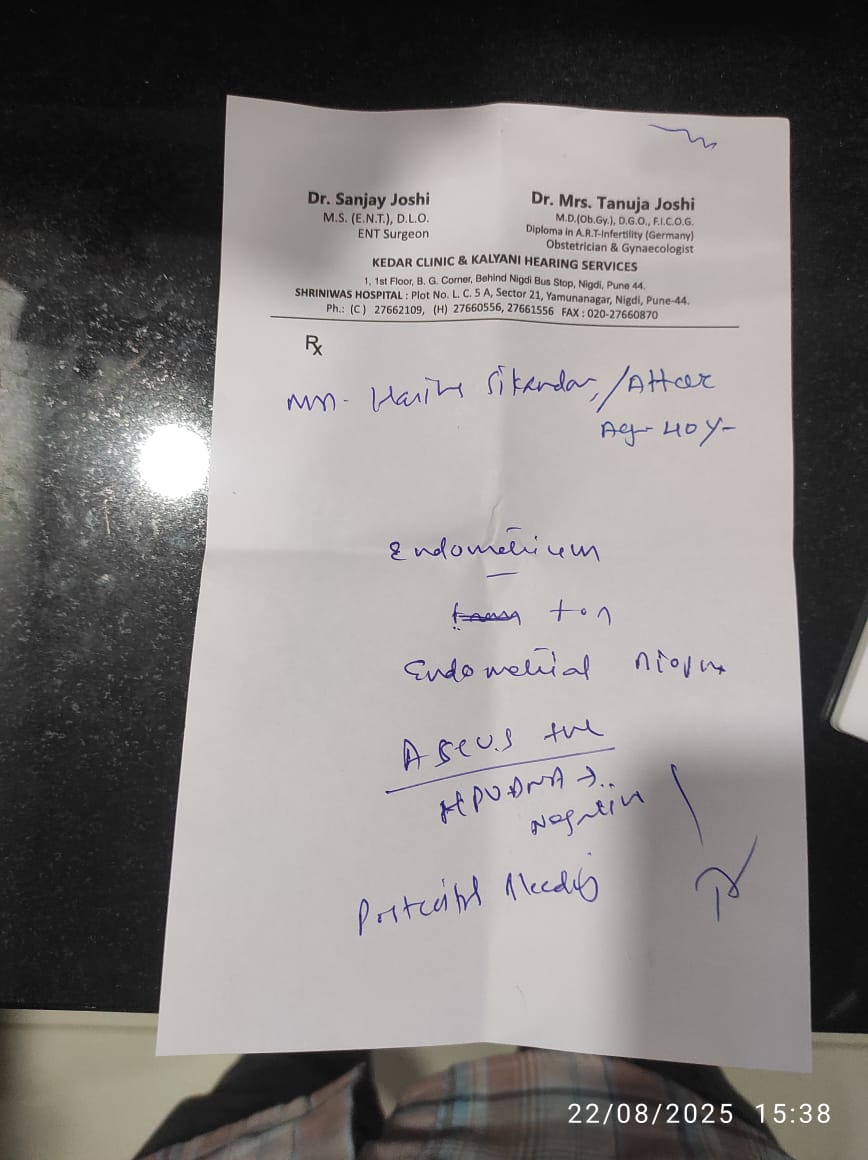 Dr. Sanjay Joshi
M.S. (E.N.T.), D.L.O.
ENT Surgeon
Dr. Mrs. Tanuja Joshi
M.D.(Ob.Gy.), D.G.O., F.I.C.O.G.
Diploma in A.R.T-Infertility (Germany)
Obstetrician & Gynaecologist
KEDAR CLINIC & KALYANI HEARING SERVICES
1, 1st Floor, B. G. Corner, Behind Nigdi Bus Stop, Nigdi, Pune 44.
SHRINIWAS HOSPITAL : Plot No. L. C. 5 A, Sector 21, Yamunanagar, Nigdi, Pune-44.
Ph.: (C) 27662109, (H) 27660556, 27661556 FAX : 020-27660870
Rx
Sikandar / Attar
Age 40 Y-
Endometrium
for
Endometrial
ASCUS +ve
HPV DNA →
Negative
Postcoital bleeding
22/08/2025 15:38